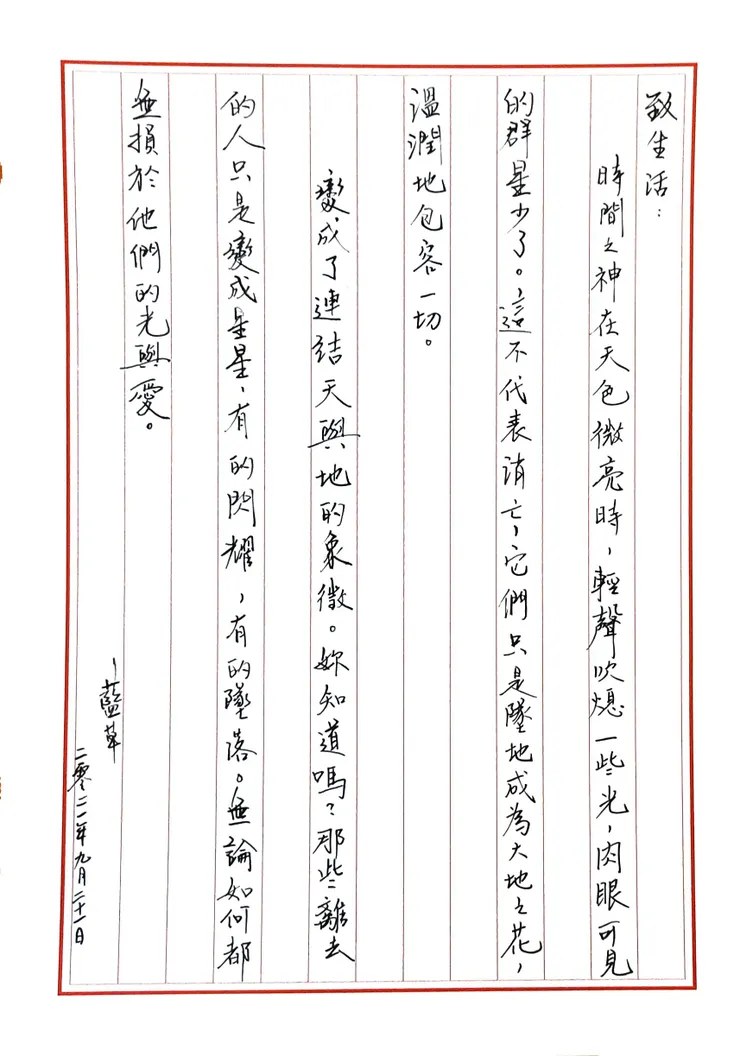 致生活：
時間之神在天色微亮時，輕聲吹熄一些光，肉眼可見
的群星少了。這不代表消亡，它們只是墜地成為大地之花，
溫潤地包容一切。
變成了連結天與地的象徵。妳知道嗎？那些離去
的人只是變成星星，有的閃耀，有的墜落。無論如何都
無損於他們的光與愛。
－藍草
二零二一年九月二十一日